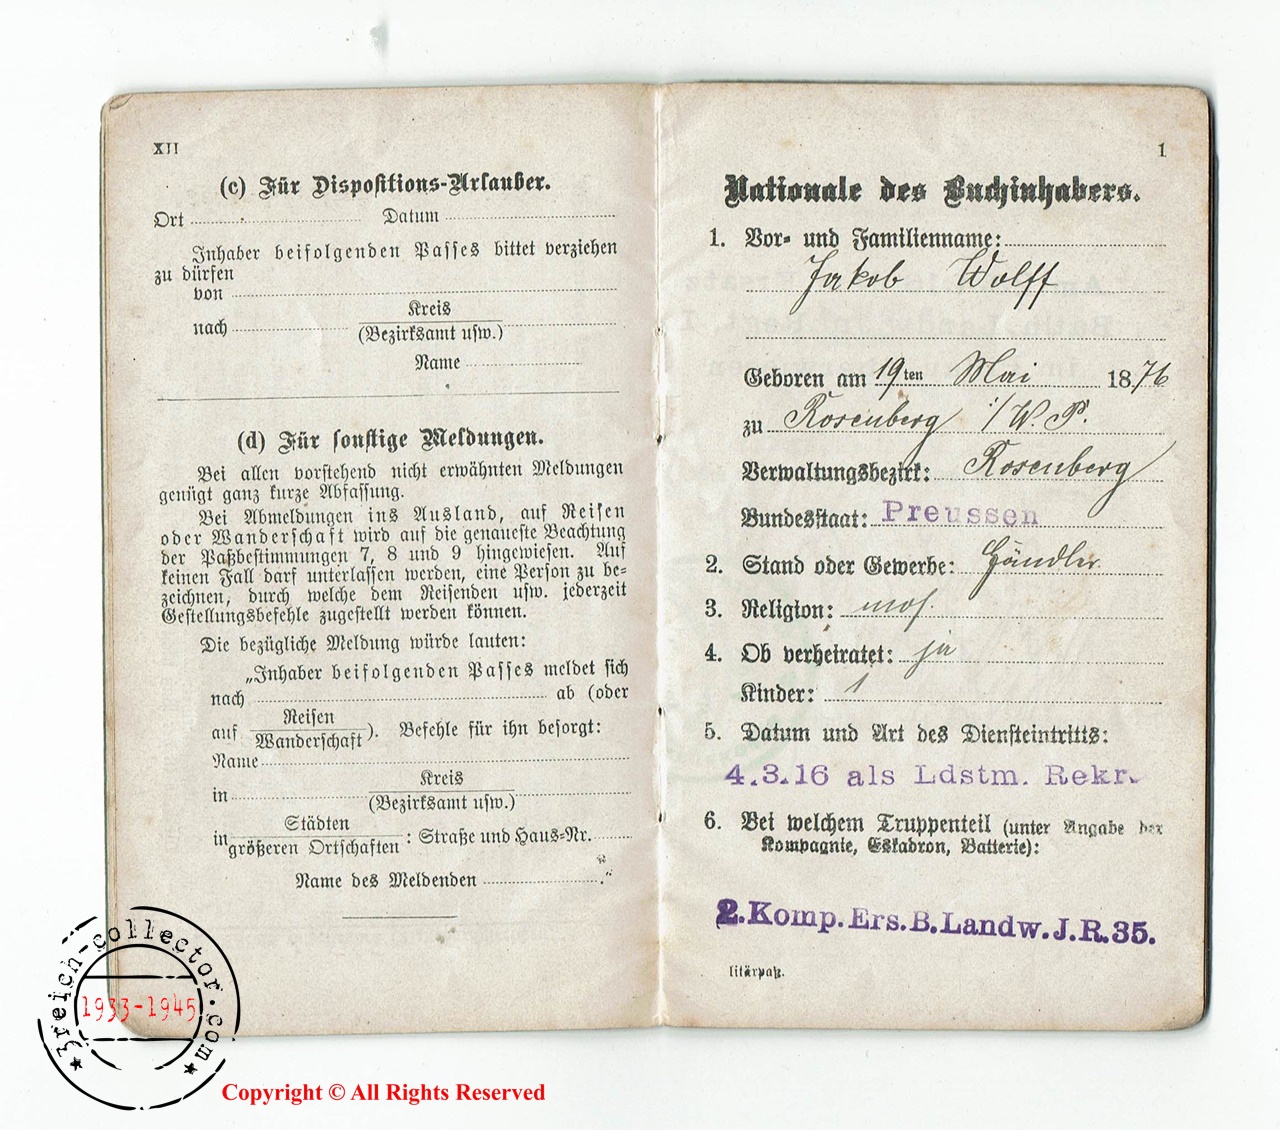 XII
(c) Für Dispositions-Urlauber.
Ort Datum
Inhaber beifolgenden Passes bittet verziehen
zu dürfen
von
nach Kreis
(Bezirksamt usw.)
Name
(d) Für sonstige Meldungen.
Bei allen vorstehend nicht erwähnten Meldungen
genügt ganz kurze Abfassung.
Bei Abmeldungen ins Ausland, auf Reisen
oder Wanderschaft wird auf die genaueste Beachtung
der Paßbestimmungen 7, 8 und 9 hingewiesen. Auf
keinen Fall darf unterlassen werden, eine Person zu be-
zeichnen, durch welche dem Reisenden usw. jederzeit
Gestellungsbefehle zugestellt werden können.
Die bezügliche Meldung würde lauten:
„Inhaber beifolgenden Passes meldet sich
nach ab (oder
auf Reisen
Wanderschaft). Befehle für ihn besorgt:
Name
in Kreis
(Bezirksamt usw.)
in Städten
größeren Ortschaften: Straße und Haus-Nr.
Name des Meldenden ."
1
Nationale des Buchinhabers.
1. Vor- und Familienname:
Jakob Wolff
Geboren am 19ten Mai 1876
zu Rosenberg i/W. P.
Verwaltungsbezirk: Rosenberg
Bundesstaat: Preussen
2. Stand oder Gewerbe: Händler
3. Religion: mos.
4. Ob verheiratet: ja
Kinder: 1
5. Datum und Art des Diensteintritts:
4.3.16 als Ldstm. Rekr.
6. Bei welchem Truppenteil (unter Angabe der
Kompagnie, Eskadron, Batterie):
2.Komp.Ers.B.Landw.J.R.35.
litärpaß.
3reich-collector.com
1933-1945
Copyright © All Rights Reserved